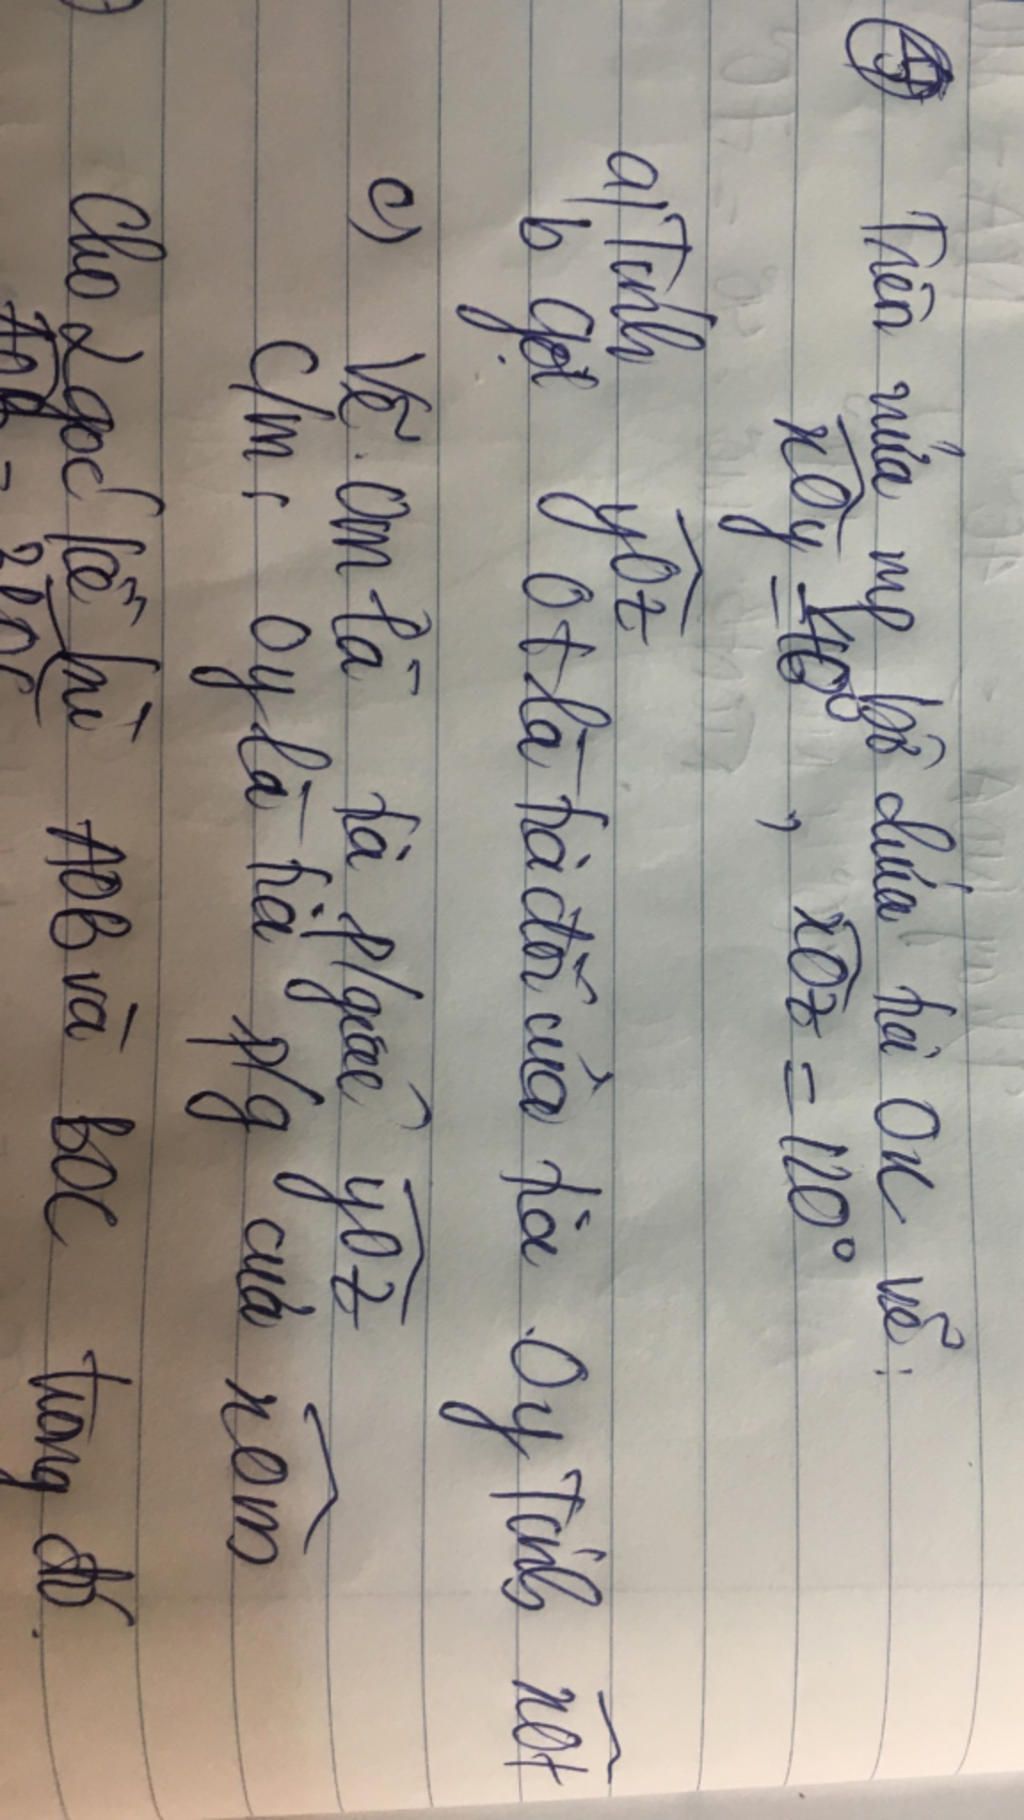 4
Trên nửa mp bờ chứa tia Ox vẽ:
xOy = 40° , xOz = 120°
a) Tính yOz
b gọi Ot là tia đối của tia Oy Tính xOt
c) Vẽ Om là tia p/giác yOz
C/m: Oy là tia p/g của xOm
Cho 2 góc kề bù AOB và BOC trong đó.